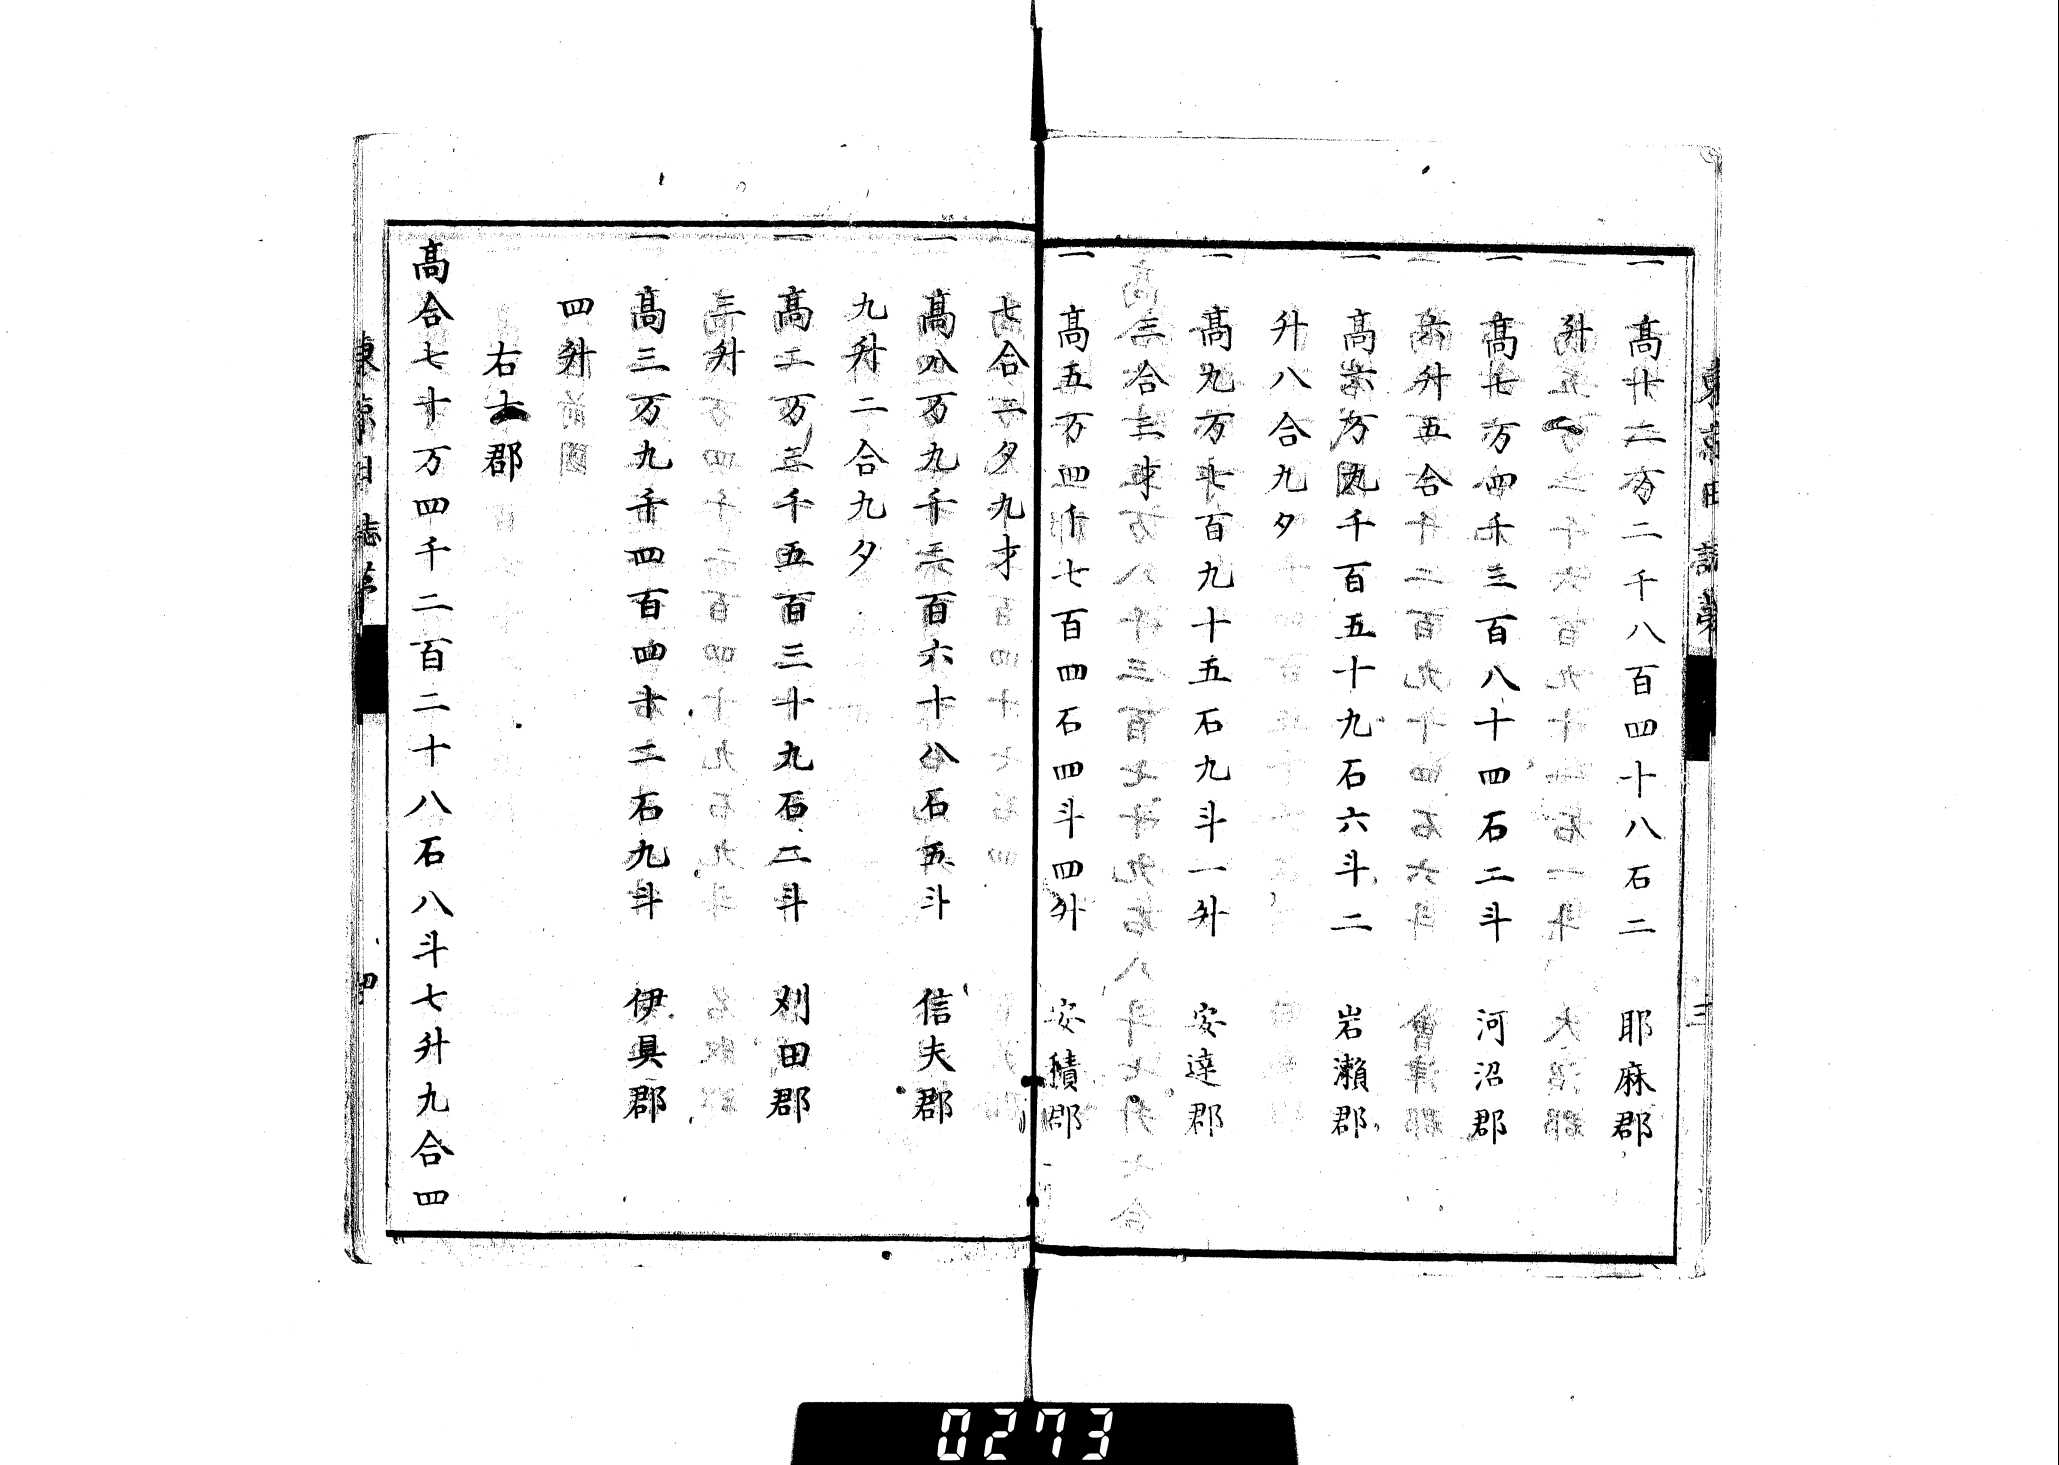 東京日誌
三
一 高廿二万二千八百四十八石二 耶麻郡
升
一 高七万四千三百八十四石二斗 河沼郡
六升五合
一 高六万九千百五十九石六斗二 岩瀬郡
升八合九夕
一 高九万七百九十五石九斗一升 安達郡
三合三才
一 高五万四千七百四石四斗四升 安積郡
七合二夕九才
一 高八万九千二百六十八石五斗 信夫郡
九升二合九夕
一 高二万三千五百三十九石二斗 刈田郡
三升
一 高三万九千四百四十二石九斗 伊具郡
四升
右 郡
高合七十万四千二百二十八石八斗七升九合四
東京日誌
四
0273